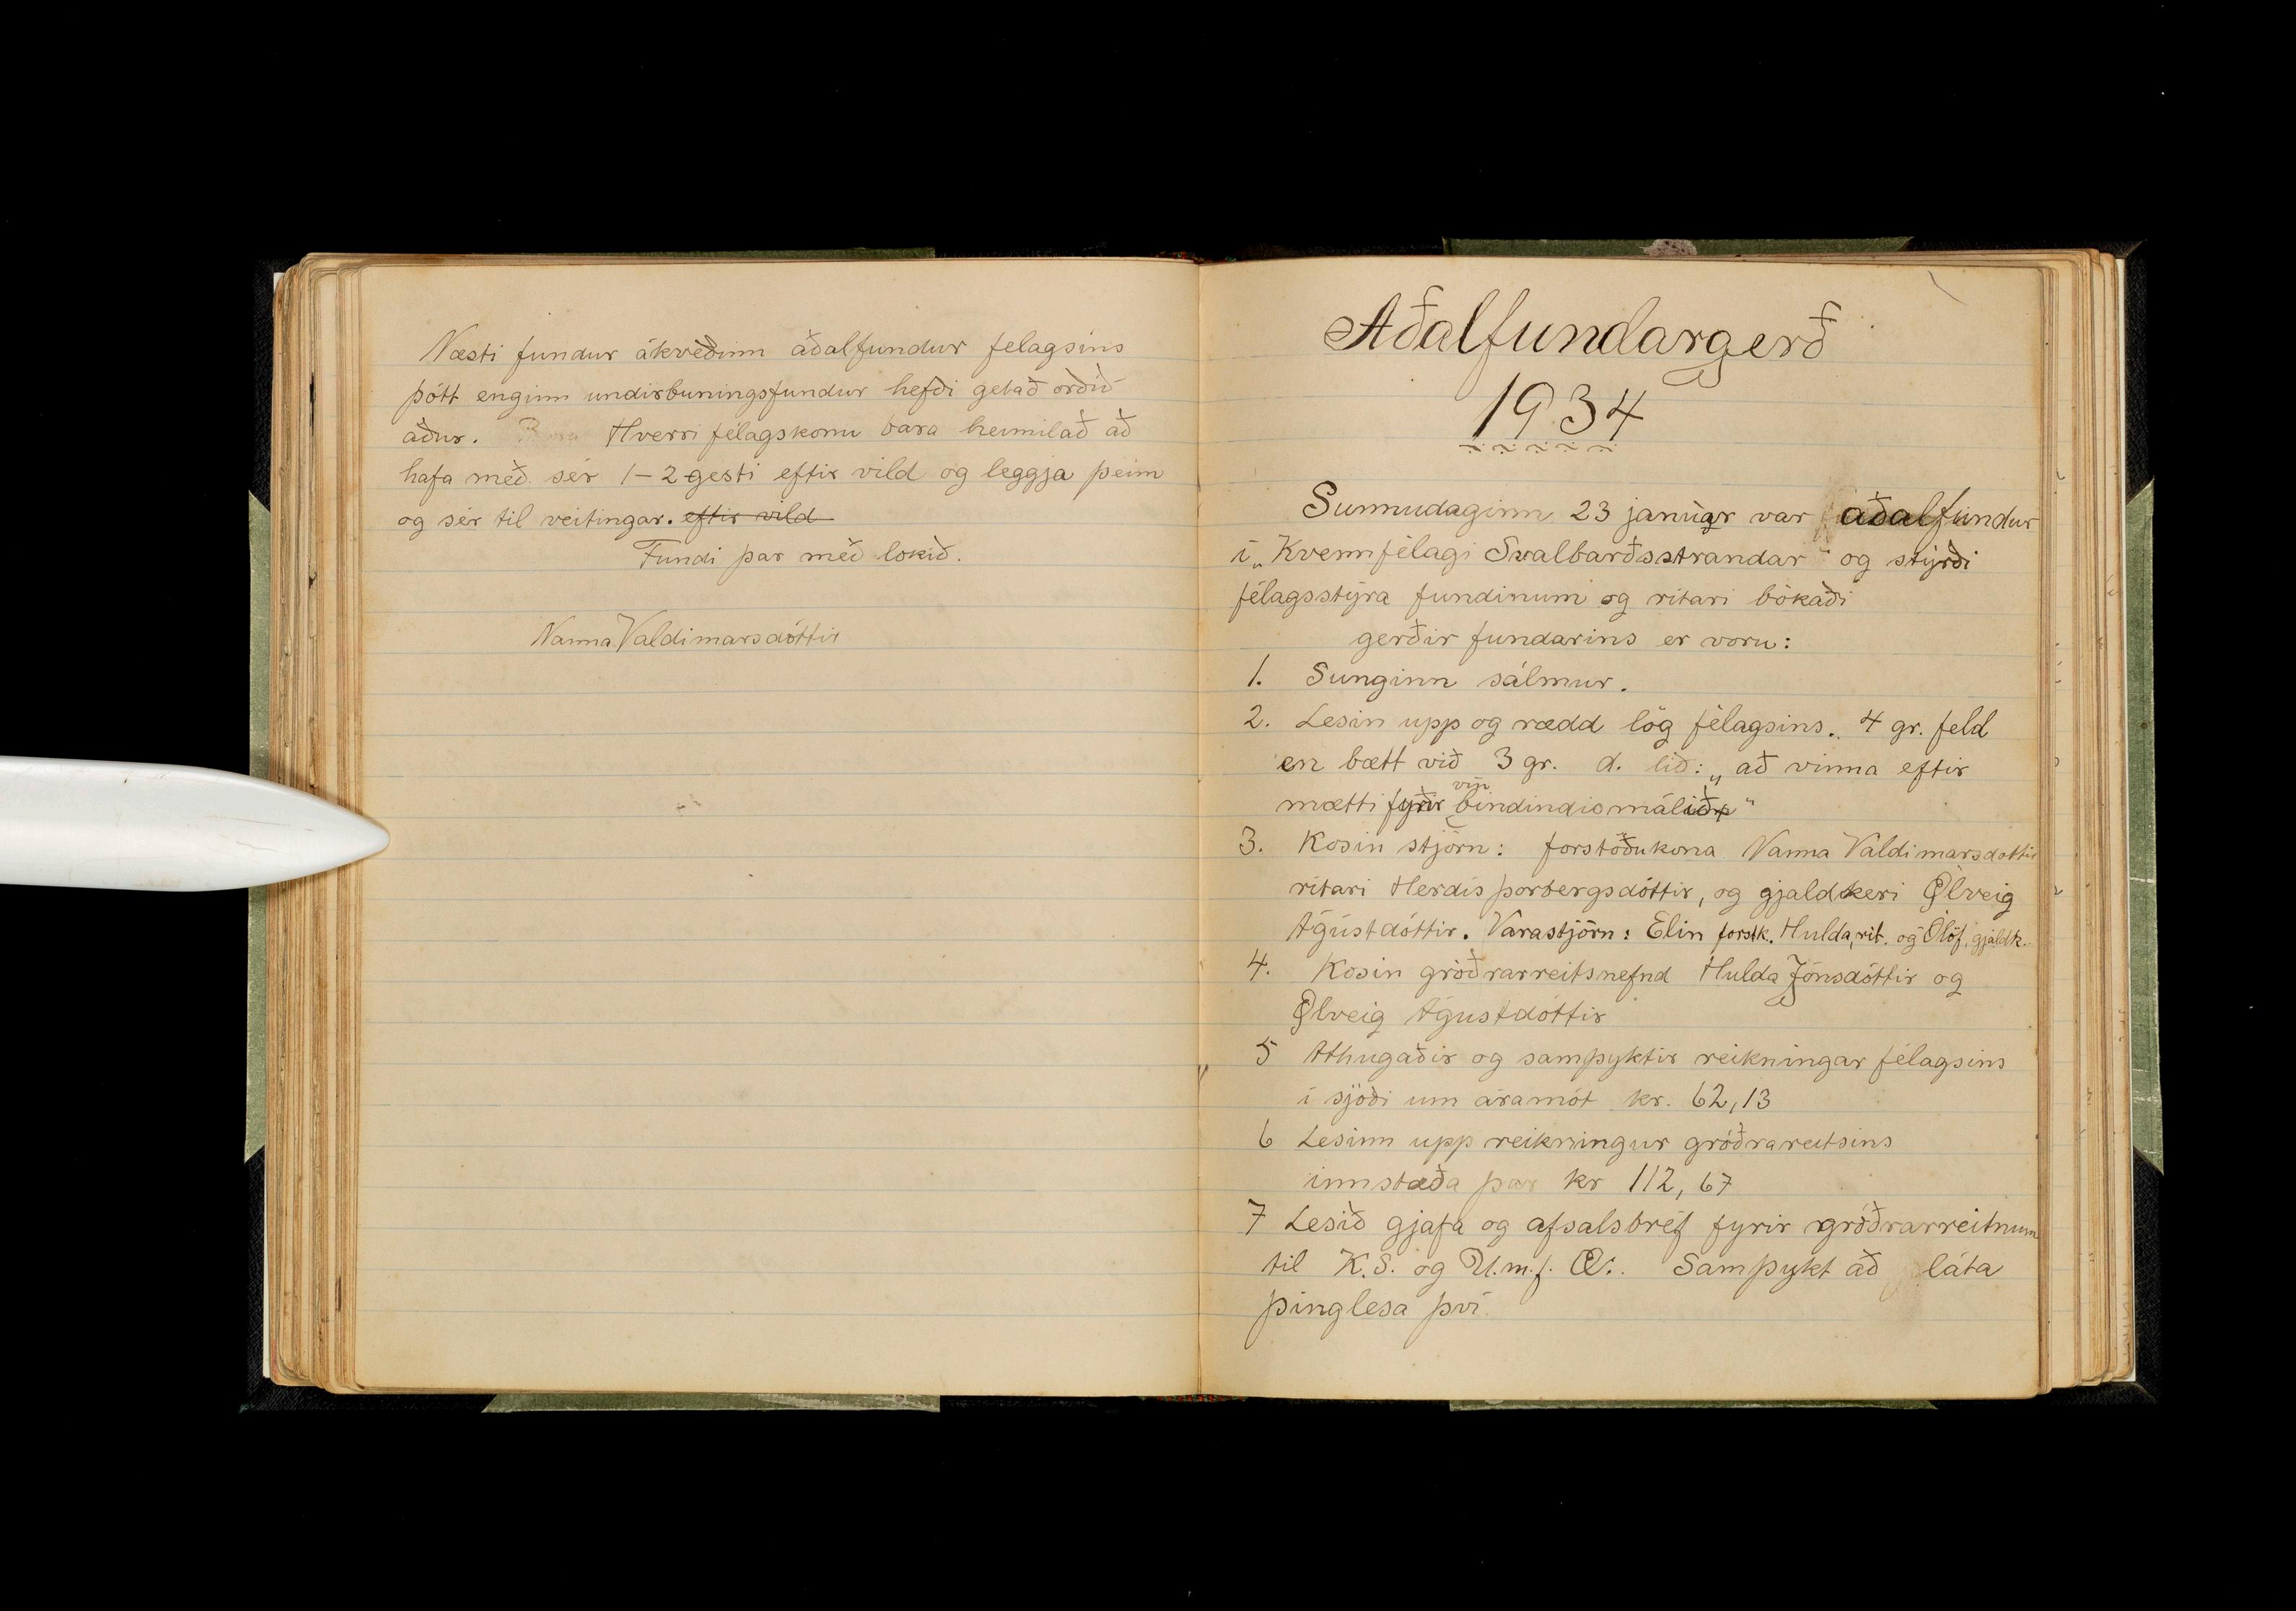 Næsti fundur ákveðinn aðalfundur felagsins
þótt enginn undirbuningsfundur hefði getað orðið
áður. Hverri félagskonu bara heimilað að
hafa með sér 1-2 gesti eftir vild og leggja þeim
og sér til veitingar. eftir vild
Fundi þar með lokið.
Nanna Valdimarsdóttir
Aðalfundargerð
1934
Sunnudaginn 23 janúar var aðalfundur
í „Kvennfélagi Svalbarðsstrandar" og stýrði
félagsstýra fundinum og ritari bókaði
gerðir fundarins er voru:
1. Sunginn sálmur.
2. Lesin upp og rædd lög félagsins. 4 gr. feld
en bætt við 3 gr. d. lið: „að vinna eftir
mætti fyrir vín bindindismálið"
3. Kosin stjórn: forstöðukona Nanna Valdimarsdottir
ritari Herdís þorbergsdóttir, og gjaldkeri Ölveig
Ágústdóttir. Varastjórn: Elin forstk. Hulda, rit. og Ólöf, gjaldk.
4. Kosin gróðrarreitsnefnd Hulda Jónsdóttir og
Ölveig Ágústdóttir
5 Athugaðir og samþyktir reikningar félagsins
í sjóði um áramót kr. 62,13
6 Lesinn upp reikningur gróðrareitsins
innstæða þar kr 112,67
7 Lesið gjafa og afsalsbréf fyrir gróðrarreitnum
til K.S. og U.m.f. Æ. Samþykt að láta
þinglesa því